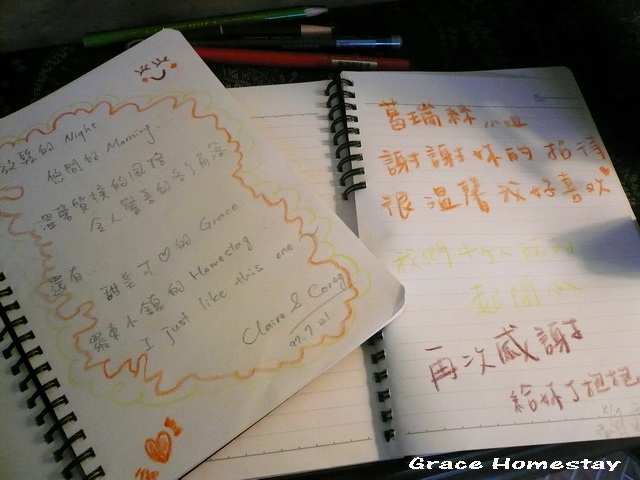 放鬆的 Night
悠閒的 Morning...
溫馨質樸的風格
令人驚喜的各個角落
還有...甜美可♡的 Grace
羅東小鎮的 Homestay
I just like this one
Claire & Corey
葛瑞絲 小姐
謝謝妳的招待
很溫馨 我好喜歡
我們
再次感謝
給妳了抱抱
Grace Homestay